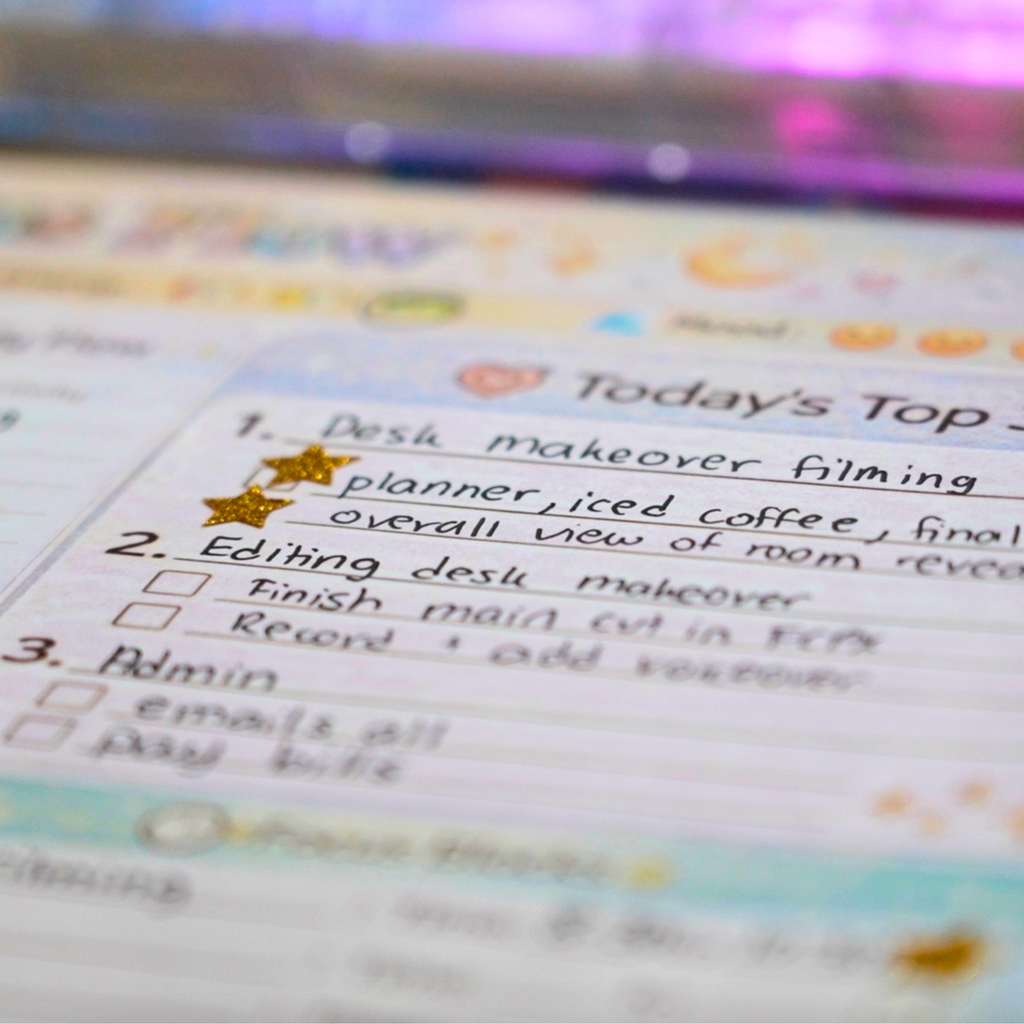 Mood:
Today's Top
1. Desk makeover filming
planner, iced coffee, final
overall view of room
2. Editing desk makeover
Finish main cut in FCPX
Record + add voiceover
3. Admin
emails all
pay bills
Focus Blocks